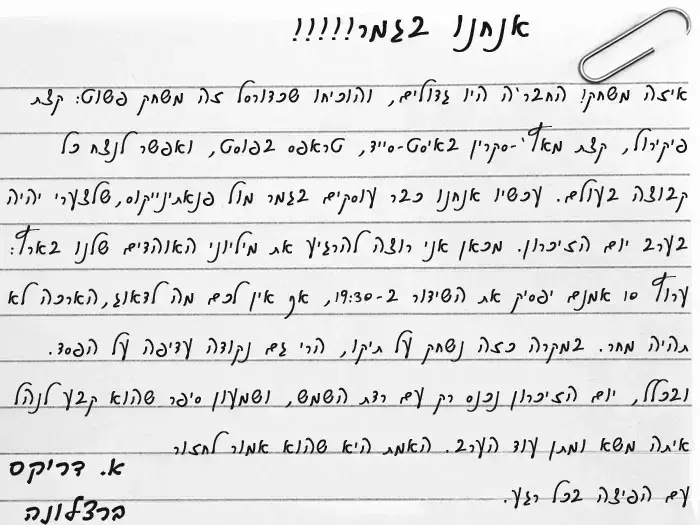 אנחנו בגמר!!!!!
איזה משחק! החבר'ה היו גדולים, והוכיחו שכדורסל זה משחק פשוט: קצת
פיקירול, קצת מאץ'-סקרין באיסט-סייד, טראפס בפוסט, ואפשר לנצח כל
קבוצה בעולם. עכשיו אנחנו כבר עוסקים בגמר מול פנאתינייקוס, שלצערי יהיה
בערב יום הזיכרון. מכאן אני רוצה להרגיע את מיליוני האוהדים שלנו בארץ:
ערוץ 10 אמנם יפסיק את השידור ב-19:30, אך אין לכם מה לדאוג, הארכה לא
תהיה מחר. במקרה כזה נשחק על תיקו, הרי גם נקודה עדיפה על הפסד.
ובכלל, יום הזיכרון נכנס רק עם רדת השמש, ושמעון סיפר שהוא קבע לנהל
איתה משא ומתן עוד הערב. האמת היא שהוא אמור לחזור
עם הפיצה בכל רגע.
א. דריקס
ברצלונה